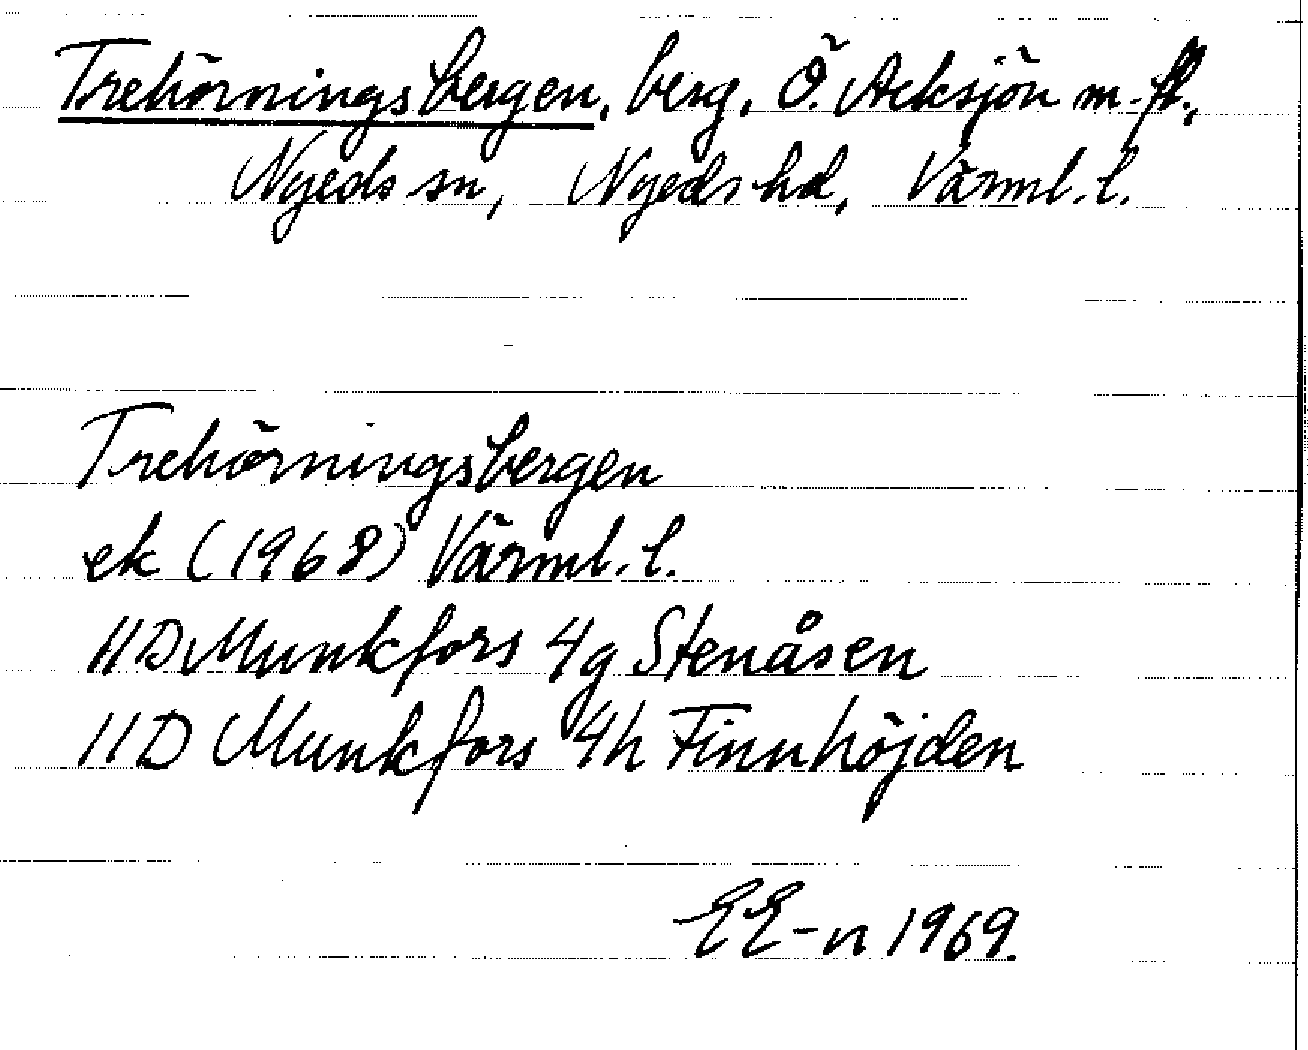 Trehörningsbergen, berg, Ö. Acksjön m.fl.,
Nyeds sn, Nyeds hd, Värml. l.
Trehörningsbergen
ek (1968) Värml. l.
11D Munkfors 4g Stenåsen
11D Munkfors 4h Finnhöjden
EE-n 1969.